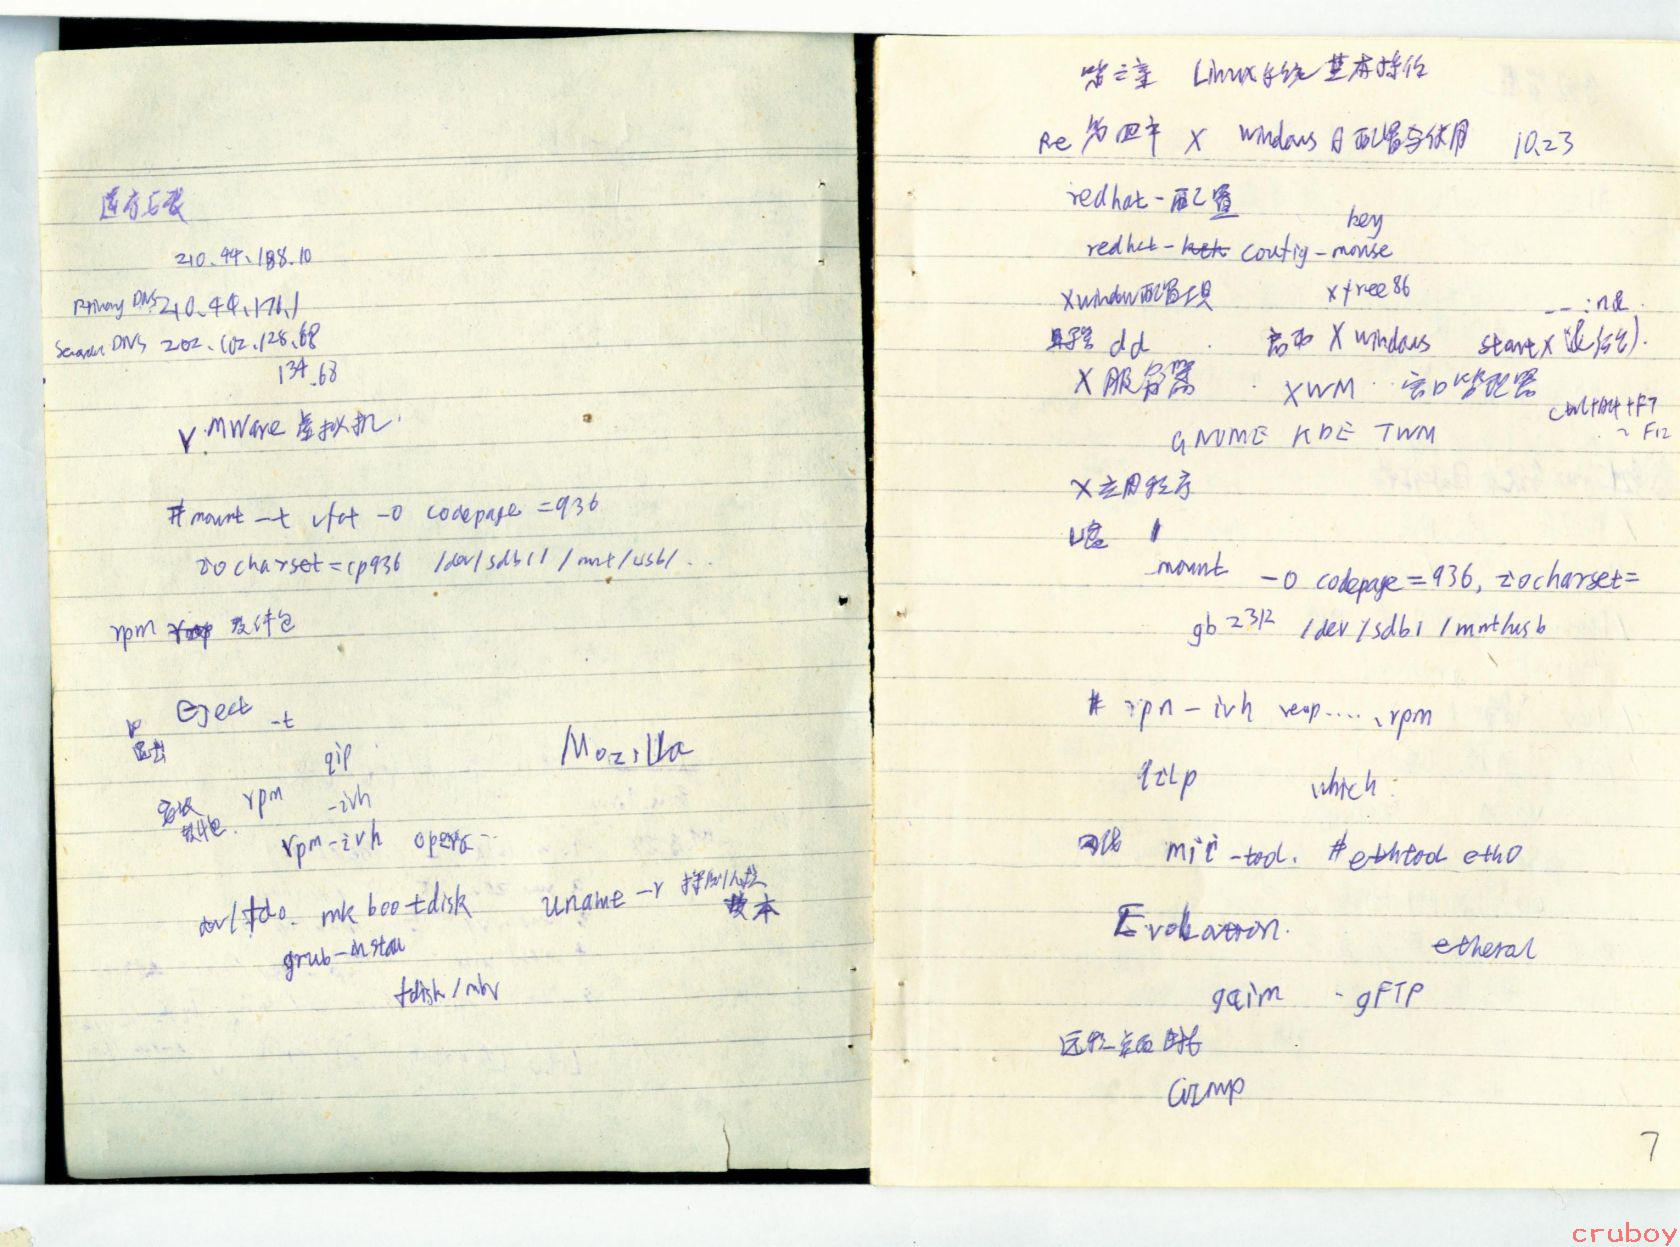 210.44.188.10
Primary DNS 210.44.176.1
DNS 202.102.128.68
134.68
VMWare 虚拟机.
#mount -t vfat -o codepage=936
iocharset=cp936 /dev/sdb1 /mnt/usb/..
rpm 软件包
Eject -t
弹出
gip
Mozilla
安装 rpm -ivh
软件包.
rpm-ivh opera...
dev/fd0. mkbootdisk
uname -r
本
grub-install
fdisk/mbr
第三章 Linux系统基本操作
Re 第四章 X Windows 的配置与使用 10.23
redhat-配置
key
redhat- config-mouse
Xwindow配置工具 xfree86
dd 启动 X Windows startx
X服务器 XWM 窗口管理器
Ctrl+Alt+F7
~F12
GNOME KDE TWM
X应用程序
U盘
mount -o codepage=936, iocharset=
gb2312 /dev/sdb1 /mnt/usb
# rpm -ivh ..... .rpm
which:
网络 mii-tool. #ethtool eth0
Evolution.
etheral
gaim - gFTP
远程桌面
Gimp
7
cruboy